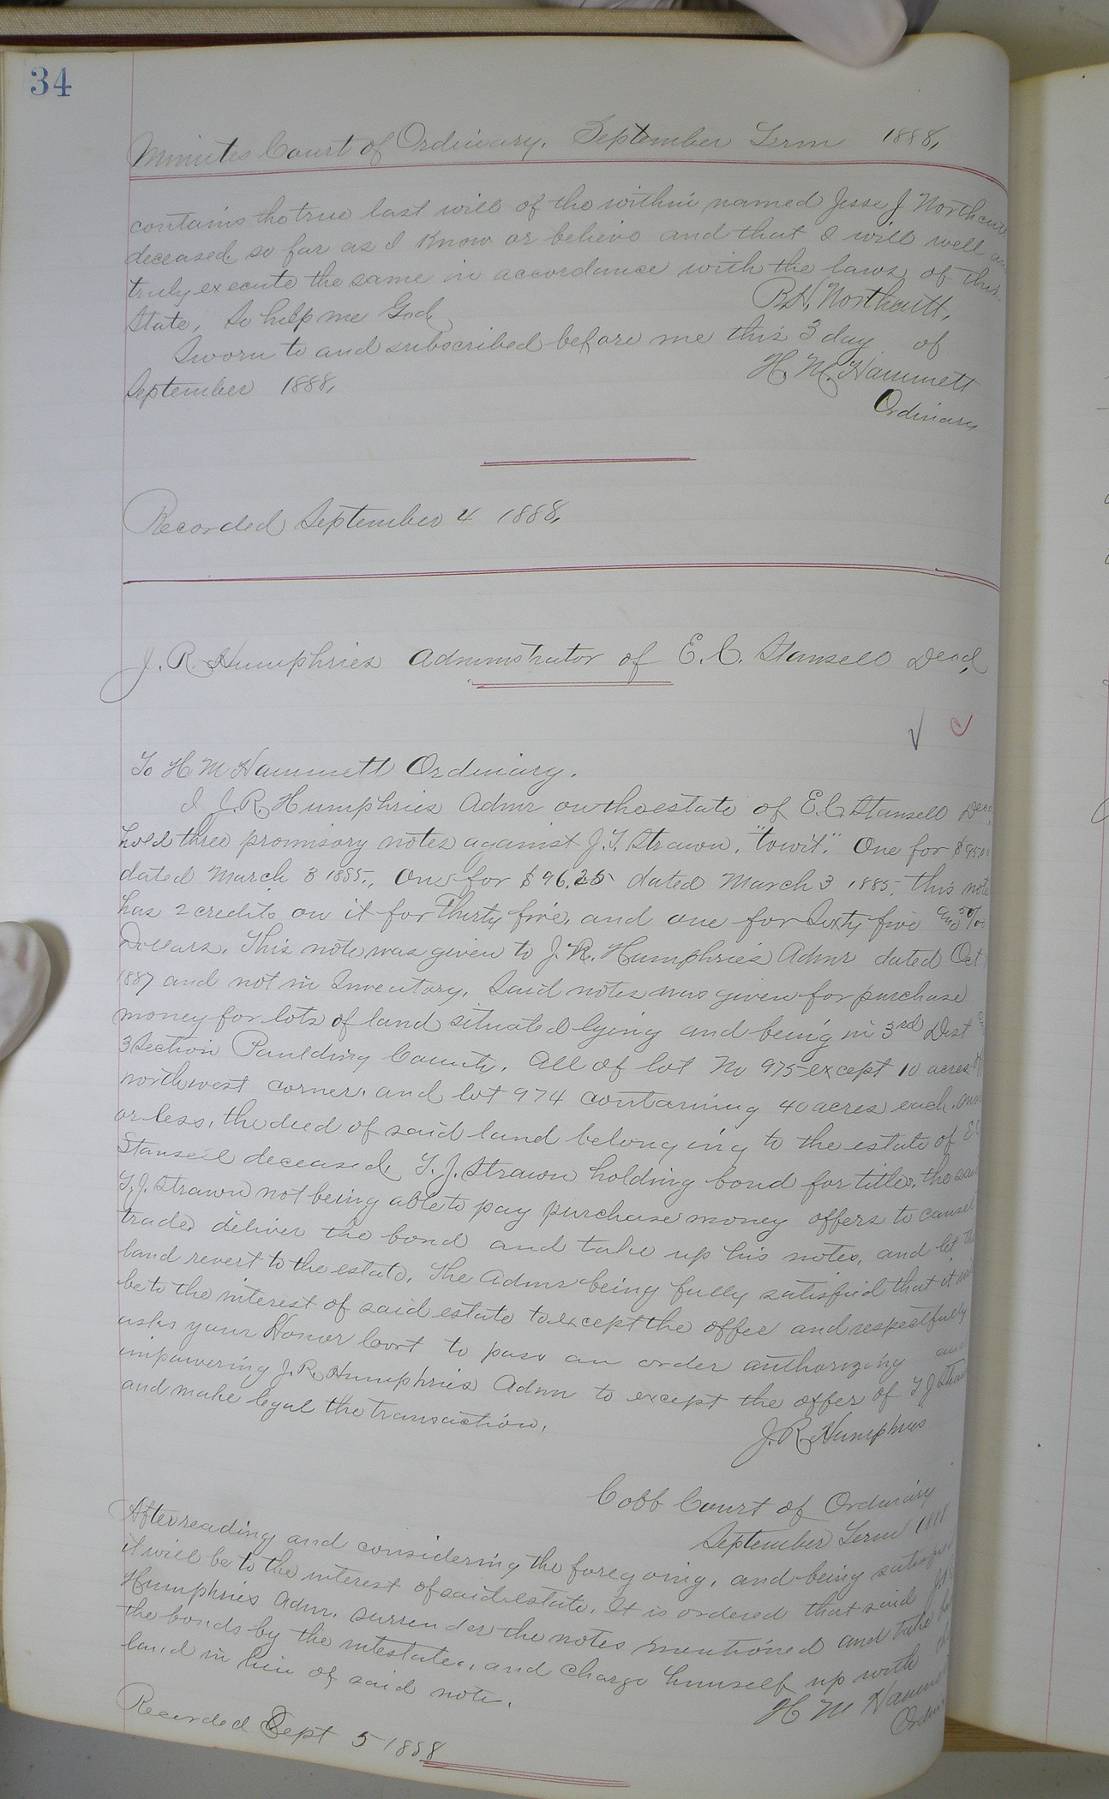 34
Minutes Court of Ordinary. September Term 1888,
contains the true last will of the within named Jesse J Northcutt
deceased so far as I Know or believe and that I will well
truly execute the same in accordance with the laws of this
State, So help me God R.H. Northcutt,
Sworn to and subscribed before me this 3 day of
September 1888, H. M. Hammett
Ordinary
Recorded September 4 1888,
J. R. Humphries Administrator of E. C. Stansell Decd,
To H M Hammett Ordinary.
I J. R. Humphries Admr on the estate of E. C. Stansell
hold three promisory notes against J. T. Strawn, "towit." One for
dated March 3 1885., One for $96.25 dated March 3 1885, this note
has 2 credits on it for Thirty five, and one for Sixty five
Dollars. This note was given to J. R. Humphries Admr dated Oct
1887 and not in Inventory. Said notes was given for purchase
money for lots of land situated lying and being in 3rd Dist
3 Section Paulding County. All of lot No 975 except 10 acres
northwest corner, and lot 974 containing 40 acres each,
or less, the deed of said land belonging to the estate of
Stansell deceased, T. J. Strawn holding bond for title, the
T. J. Strawn not being able to pay purchase money offers to
trade deliver the bond and take up his notes, and let
land revert to the estate. The Admr being fully satisfied that it
be to the interest of said estate to except the offer and respectfully
asks your Honor Cort to pass an order authorizing
impowering J. R. Humphries Admr to except the offer of T J
and make legal the transaction. J. R. Humphries
Cobb Court of Ordinary
September Term
After reading and considering the foregoing, and being
it will be to the interest of said estate. It is ordered that said
Humphries Adm. surrender the notes mentioned and take
the bonds by the intestate, and charge himself up with
land in lieu of said note. H M
Recorded Sept 5 1888